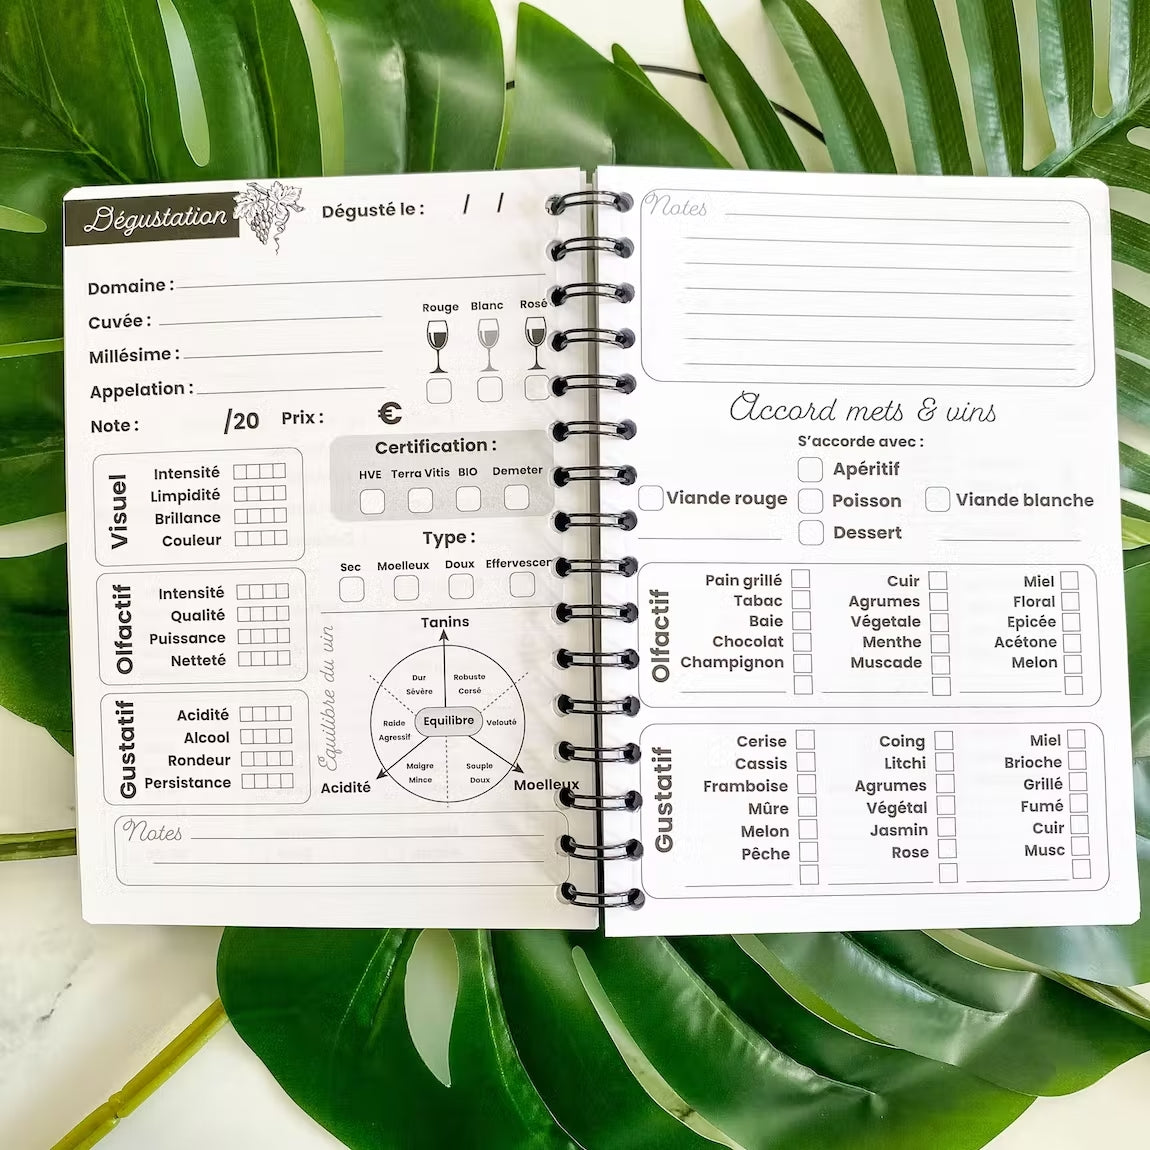 Dégustation
Dégusté le : / /
Domaine :
Cuvée :
Millésime :
Appelation :
Note : /20 Prix : €
Rouge Blanc Rosé
Certification :
HVE Terra Vitis BIO Demeter
Type :
Sec Moelleux Doux Effervescen
Visuel
Intensité
Limpidité
Brillance
Couleur
Olfactif
Intensité
Qualité
Puissance
Netteté
Gustatif
Acidité
Alcool
Rondeur
Persistance
Equilibre du vin
Tanins
Dur
Sèvère
Robuste
Corsé
Raide
Agressif
Equilibre
Velouté
Maigre
Mince
Souple
Doux
Acidité
Moelleux
Notes
Notes
Accord mets & vins
S'accorde avec :
Apéritif
Viande rouge Poisson Viande blanche
Dessert
Olfactif
Pain grillé Cuir Miel
Tabac Agrumes Floral
Baie Végetale Epicée
Chocolat Menthe Acétone
Champignon Muscade Melon
Gustatif
Cerise Coing Miel
Cassis Litchi Brioche
Framboise Agrumes Grillé
Mûre Végétal Fumé
Melon Jasmin Cuir
Pêche Rose Musc